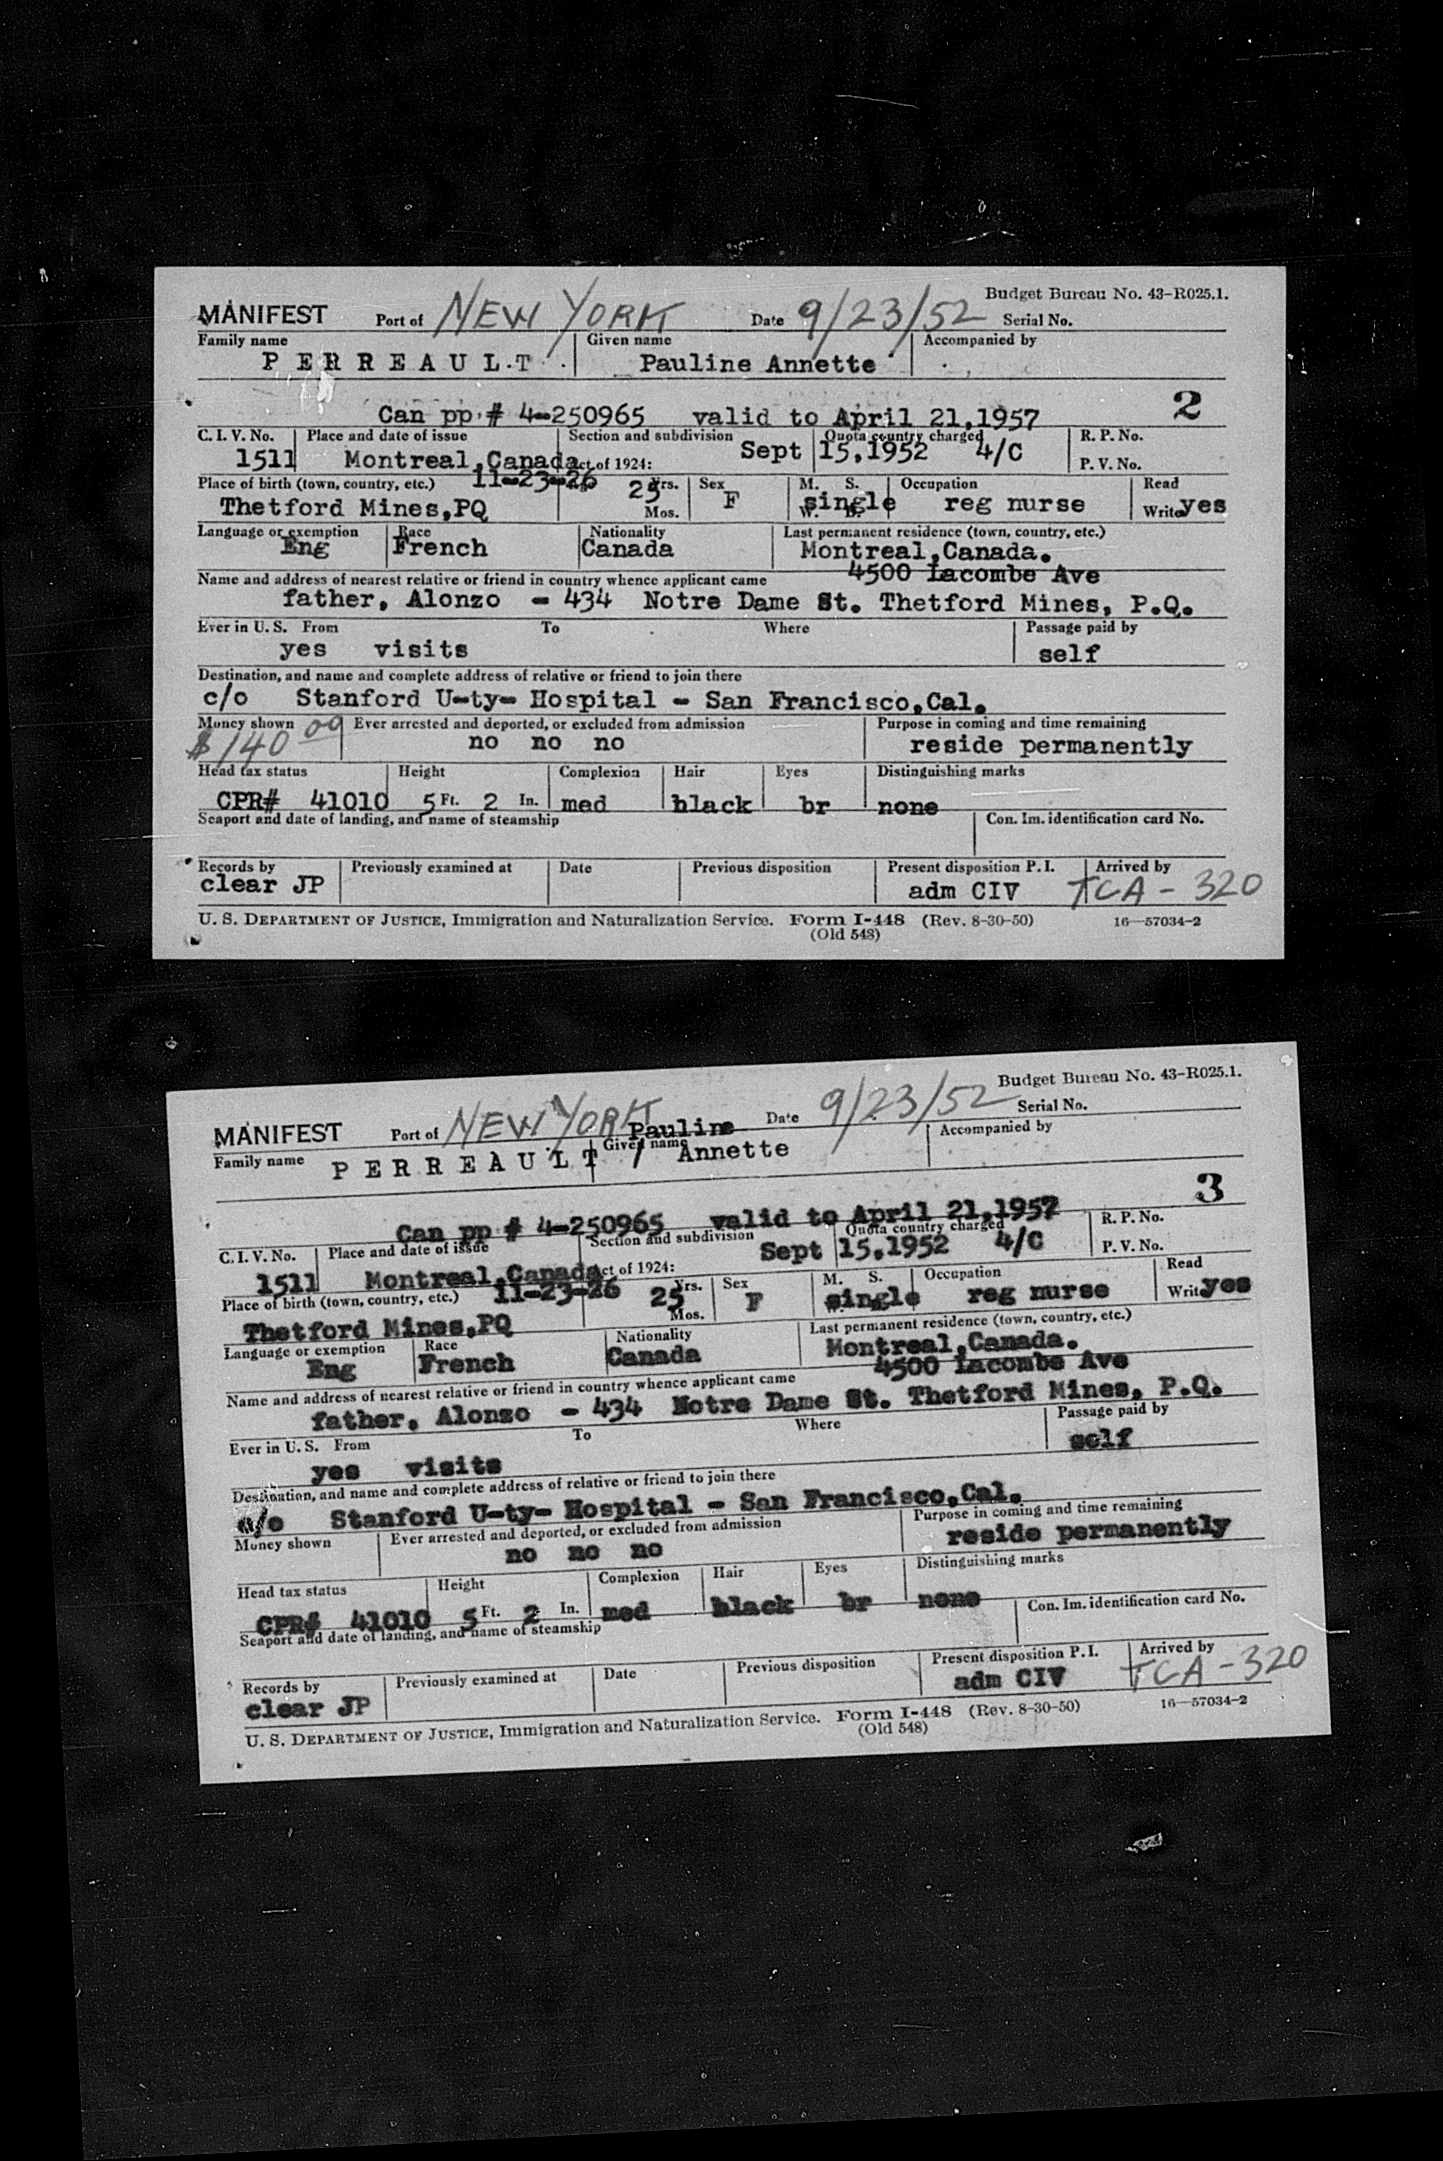 Budget Bureau No. 43-R025.1.
MANIFEST Port of NEW YORK Date 9/23/52 Serial No.
Family name Given name Accompanied by
P E R R E A U L T Pauline Annette
2
Can pp # 4-250965 valid to April 21,1957
C. I. V. No. Place and date of issue Section and subdivision Quota country charged R. P. No.
1511 Montreal,Canada Act of 1924: Sept 15,1952 4/C P. V. No.
Place of birth (town, country, etc.) 11-23-26 25 Yrs. Sex M. S. Occupation Read
Thetford Mines,PQ Mos. F W. single reg nurse Write yes
Language or exemption Race Nationality Last permanent residence (town, country, etc.)
Eng French Canada Montreal,Canada.
4500 Lacombe Ave
Name and address of nearest relative or friend in country whence applicant came
father, Alonzo - 434 Notre Dame St. Thetford Mines, P.Q.
Ever in U. S. From To Where Passage paid by
yes visits self
Destination, and name and complete address of relative or friend to join there
c/o Stanford U-ty- Hospital - San Francisco,Cal.
Money shown Ever arrested and deported, or excluded from admission Purpose in coming and time remaining
$140 00 no no no reside permanently
Head tax status Height Complexion Hair Eyes Distinguishing marks
CPR# 41010 5 Ft. 2 In. med black br none
Seaport and date of landing, and name of steamship Con. Im. identification card No.
Records by Previously examined at Date Previous disposition Present disposition P. I. Arrived by
clear JP adm CIV TCA - 320
U. S. DEPARTMENT OF JUSTICE, Immigration and Naturalization Service. Form I-448 (Rev. 8-30-50) 16—57034-2
(Old 548)
Budget Bureau No. 43-R025.1.
MANIFEST Port of NEW YORK Date 9/23/52 Serial No.
Pauline
Family name Given name Accompanied by
P E R R E A U L T Annette
3
Can pp # 4-250965 valid to April 21,1957
C. I. V. No. Place and date of issue Section and subdivision Quota country charged R. P. No.
1511 Montreal,Canada Act of 1924: Sept 15,1952 4/C P. V. No.
Place of birth (town, country, etc.) 11-23-26 25 Yrs. Sex M. S. Occupation Read
Thetford Mines,PQ Mos. F single reg nurse Write yes
Language or exemption Race Nationality Last permanent residence (town, country, etc.)
Eng French Canada Montreal,Canada.
4500 Lacombe Ave
Name and address of nearest relative or friend in country whence applicant came
father, Alonzo - 434 Notre Dame St. Thetford Mines, P.Q.
Ever in U. S. From To Where Passage paid by
yes visits self
Destination, and name and complete address of relative or friend to join there
c/o Stanford U-ty- Hospital - San Francisco,Cal.
Money shown Ever arrested and deported, or excluded from admission Purpose in coming and time remaining
no no no reside permanently
Head tax status Height Complexion Hair Eyes Distinguishing marks
CPR# 41010 5 Ft. 2 In. med black br none
Seaport and date of landing, and name of steamship Con. Im. identification card No.
Records by Previously examined at Date Previous disposition Present disposition P. I. Arrived by
clear JP adm CIV TCA - 320
U. S. DEPARTMENT OF JUSTICE, Immigration and Naturalization Service. Form I-448 (Rev. 8-30-50) 16—57034-2
(Old 548)